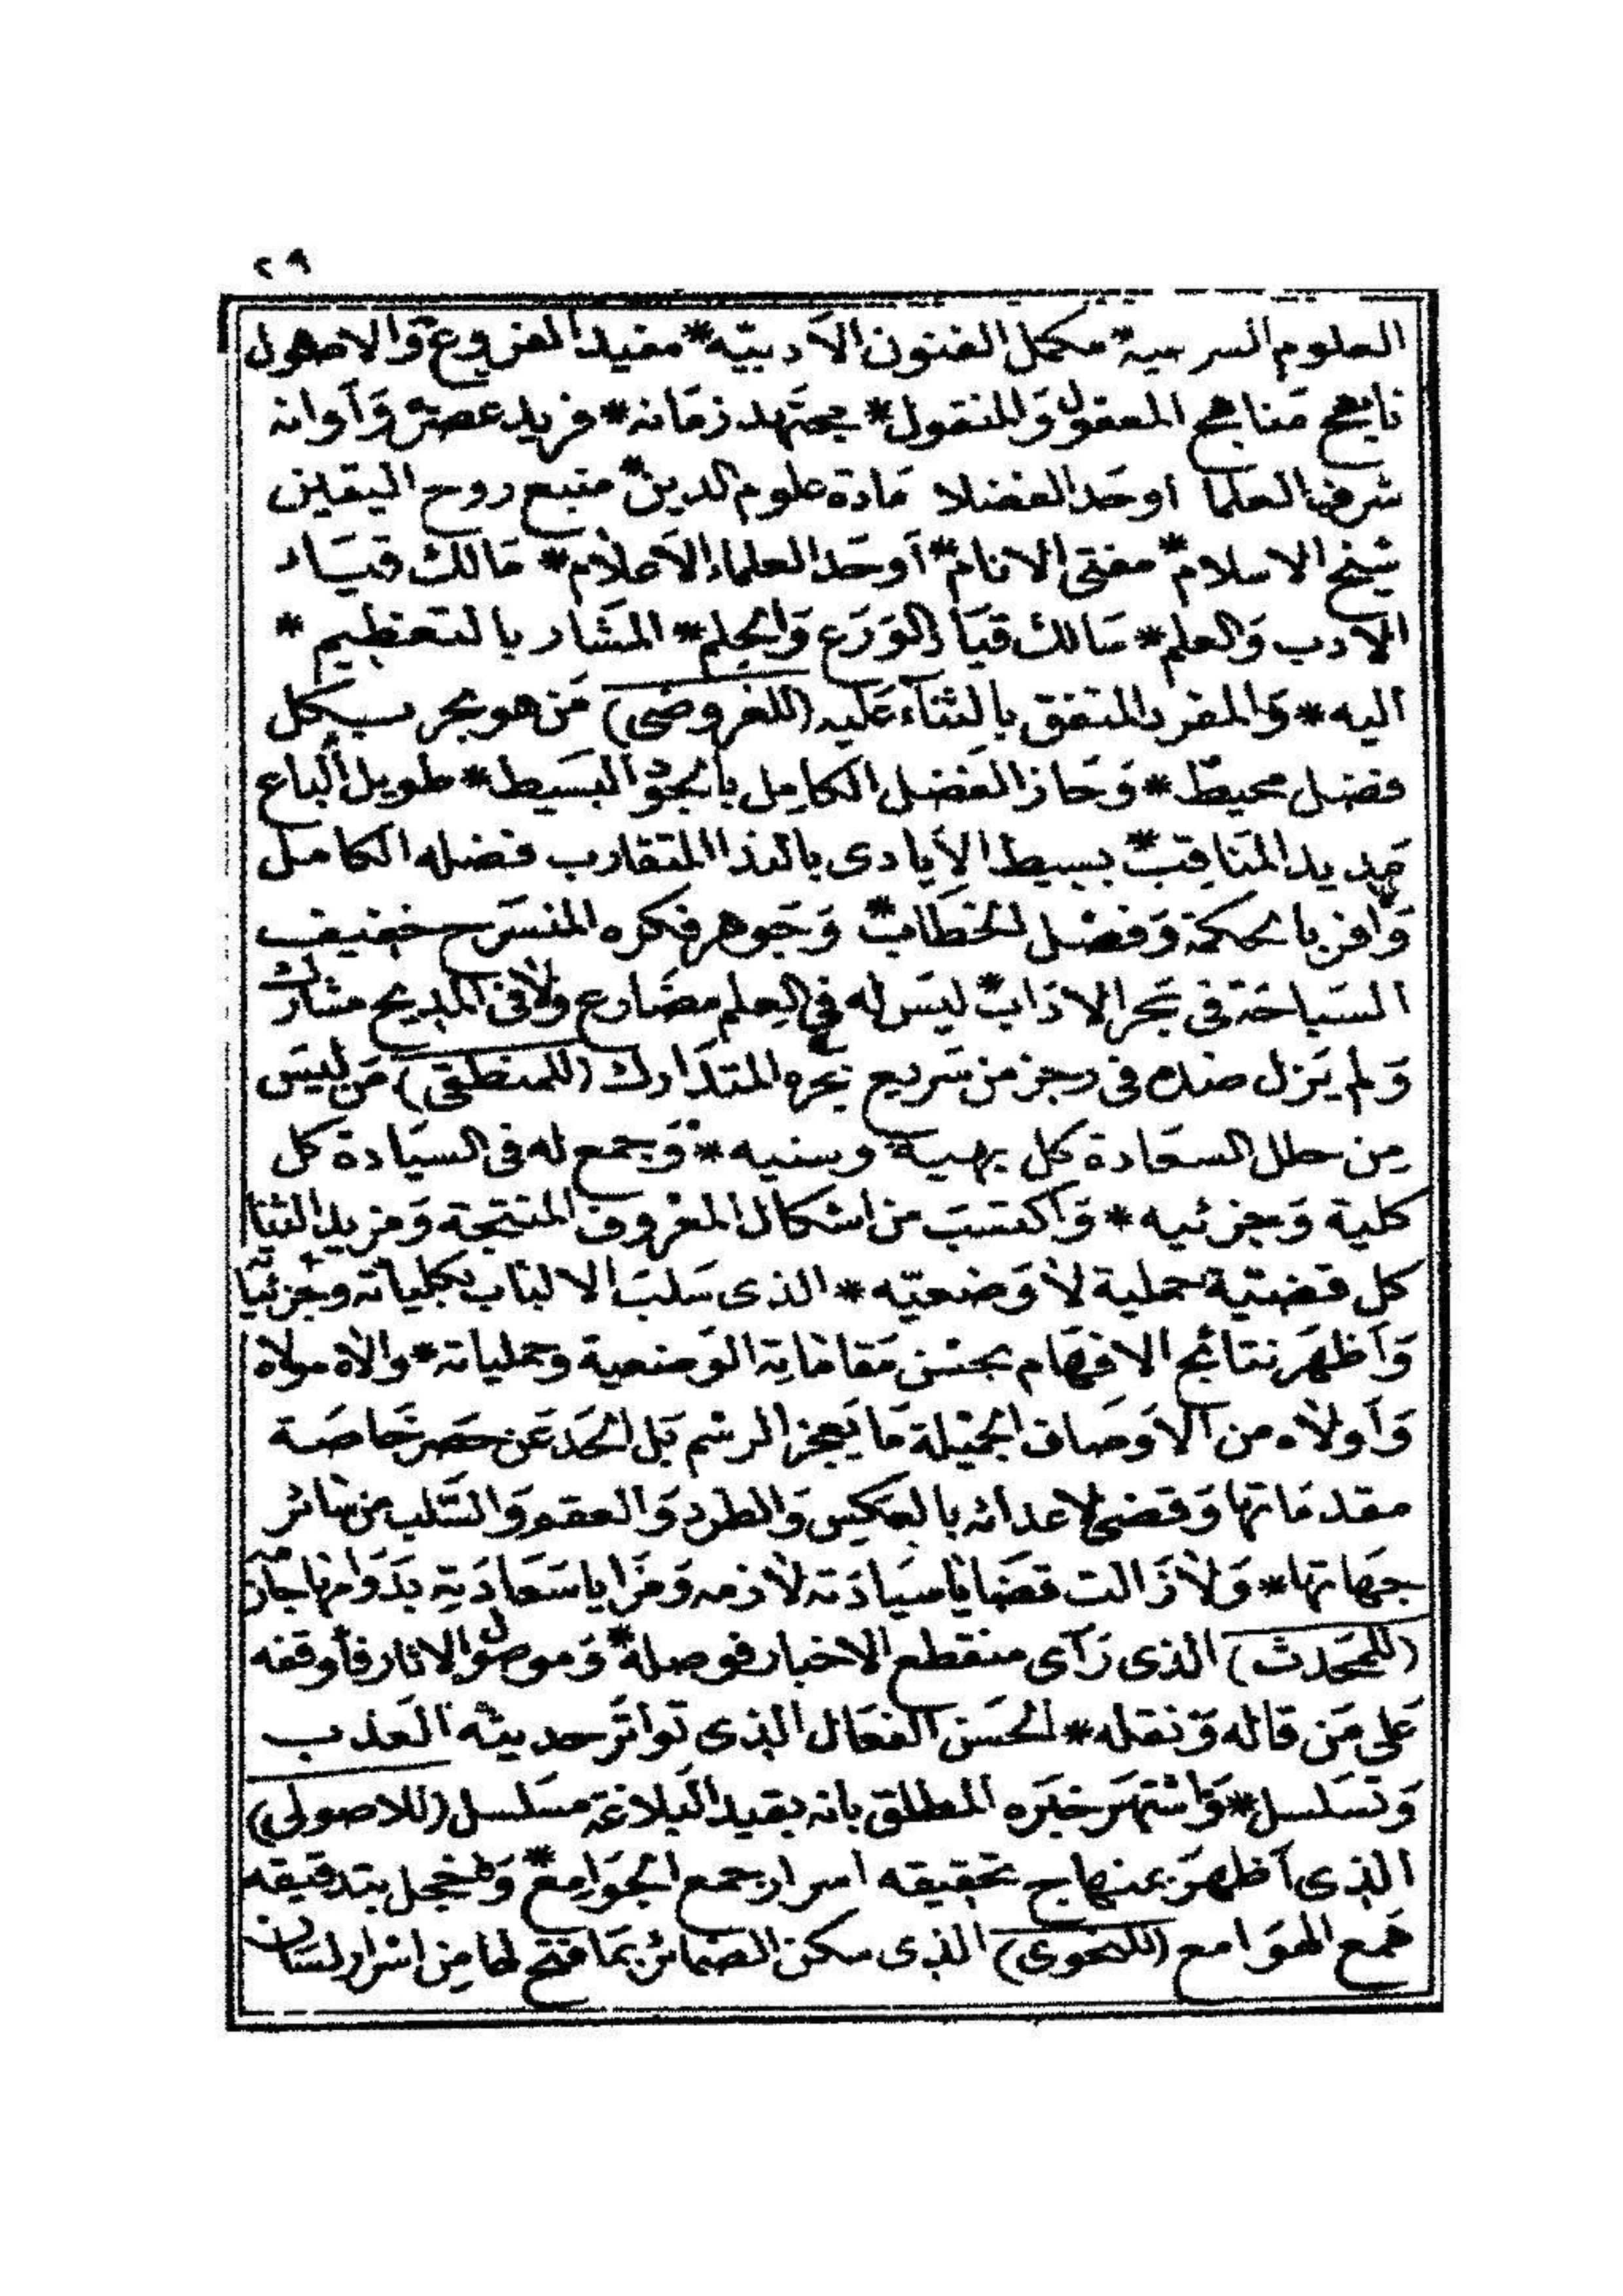 ٢٩
العلوم الشرعية مكمل الفنون الأدبيّه * مفيد الفروع وَالاصول
ناهج مَناهج المعقول وَالمنقول * مجتَهد زمَانه * فريد عصره وَأوانه
شرف العلما اوحَد الفضلا مَادة علوم الدين * منبع روح اليقين
شيخ الاسلام * مفتى الانام * أوحَد العلماء الأعلام * مَالك قيَاد
الادب وَالعلم * سَالك قيَاد الوَرَع وَالحِلم * المشَار بالتعظيم *
اليه * وَالمفرد المتفق بالثنَاء عَليه (للعروضى) مَن هو بحر بكل
فضل محيط * وَحَاز الفضل الكامِل بالجود البسَيط * طويل الباع
مَديد المنَاقِب * بسيط الأيادى بالندا المتقارب فضله الكامل
وَافر بالحكمة وَفضل الخطَاب * وَجَوهر فكره المنسَرح خفيف
السبَاحَة فى بَحر الادَاب * ليسَ له فى العِلم مضَارع وَلا فى المديح مشارك
وَلم يَزل ضده فى رجز من سَريع بحره المتدَارك (للمنطقى) مَن لبسَ
مِن حلل السعَادة كل بهية وسنيه * وَجمع له فى السيَادة كل
كلية وَجزئيه * وَاكتسَبَ من اشكال المعروف المنتجة وَمزيد الثنا
كل قضيّية حملية لا وَضعيّه * الذى سَلبَ الالبَاب بكلياته وجزئياته
وَأظهَر نتائج الافهَام بحسْن مَقامَاتِه الوَضعية وحمليانه * والاه مولاه
وَأولاه من الأوصَاف الجميْلة مَا يَعجز الرسْم بَل الحَد عَن حَصر خَاصَة
مقدمَاتها وَقضى لاعدائه بالعكس وَالطرد وَالعقم وَالسَّلب من سَائر
جهَاتها * وَلا زَالت قضَايا سيَادَته لازمه وَمَزايا سَعَادَتِه بدَوامها جازمه
(للمحَدث) الذى رَآى منقطع الاخبار فوصله * وَموصول الاثار فأوقفه
عَلى مَن قاله وَنقله * الحسَن الفعَال الذى تواتَر حديثه العَذب
وَتسَلسل * وَاشتهَر خبَره المطلق بانه بقيد البَلاغة مسَلسل (للاصولى)
الذى أظهَرَ بمنهاج تحقيقه اسرار جمع الجوَامِع * وَاخجل بتدقيقه
همع الهوَامع (للنحوى) الذى سكن الضمائر بمَا فتح لها مِن اسْرار لسَان